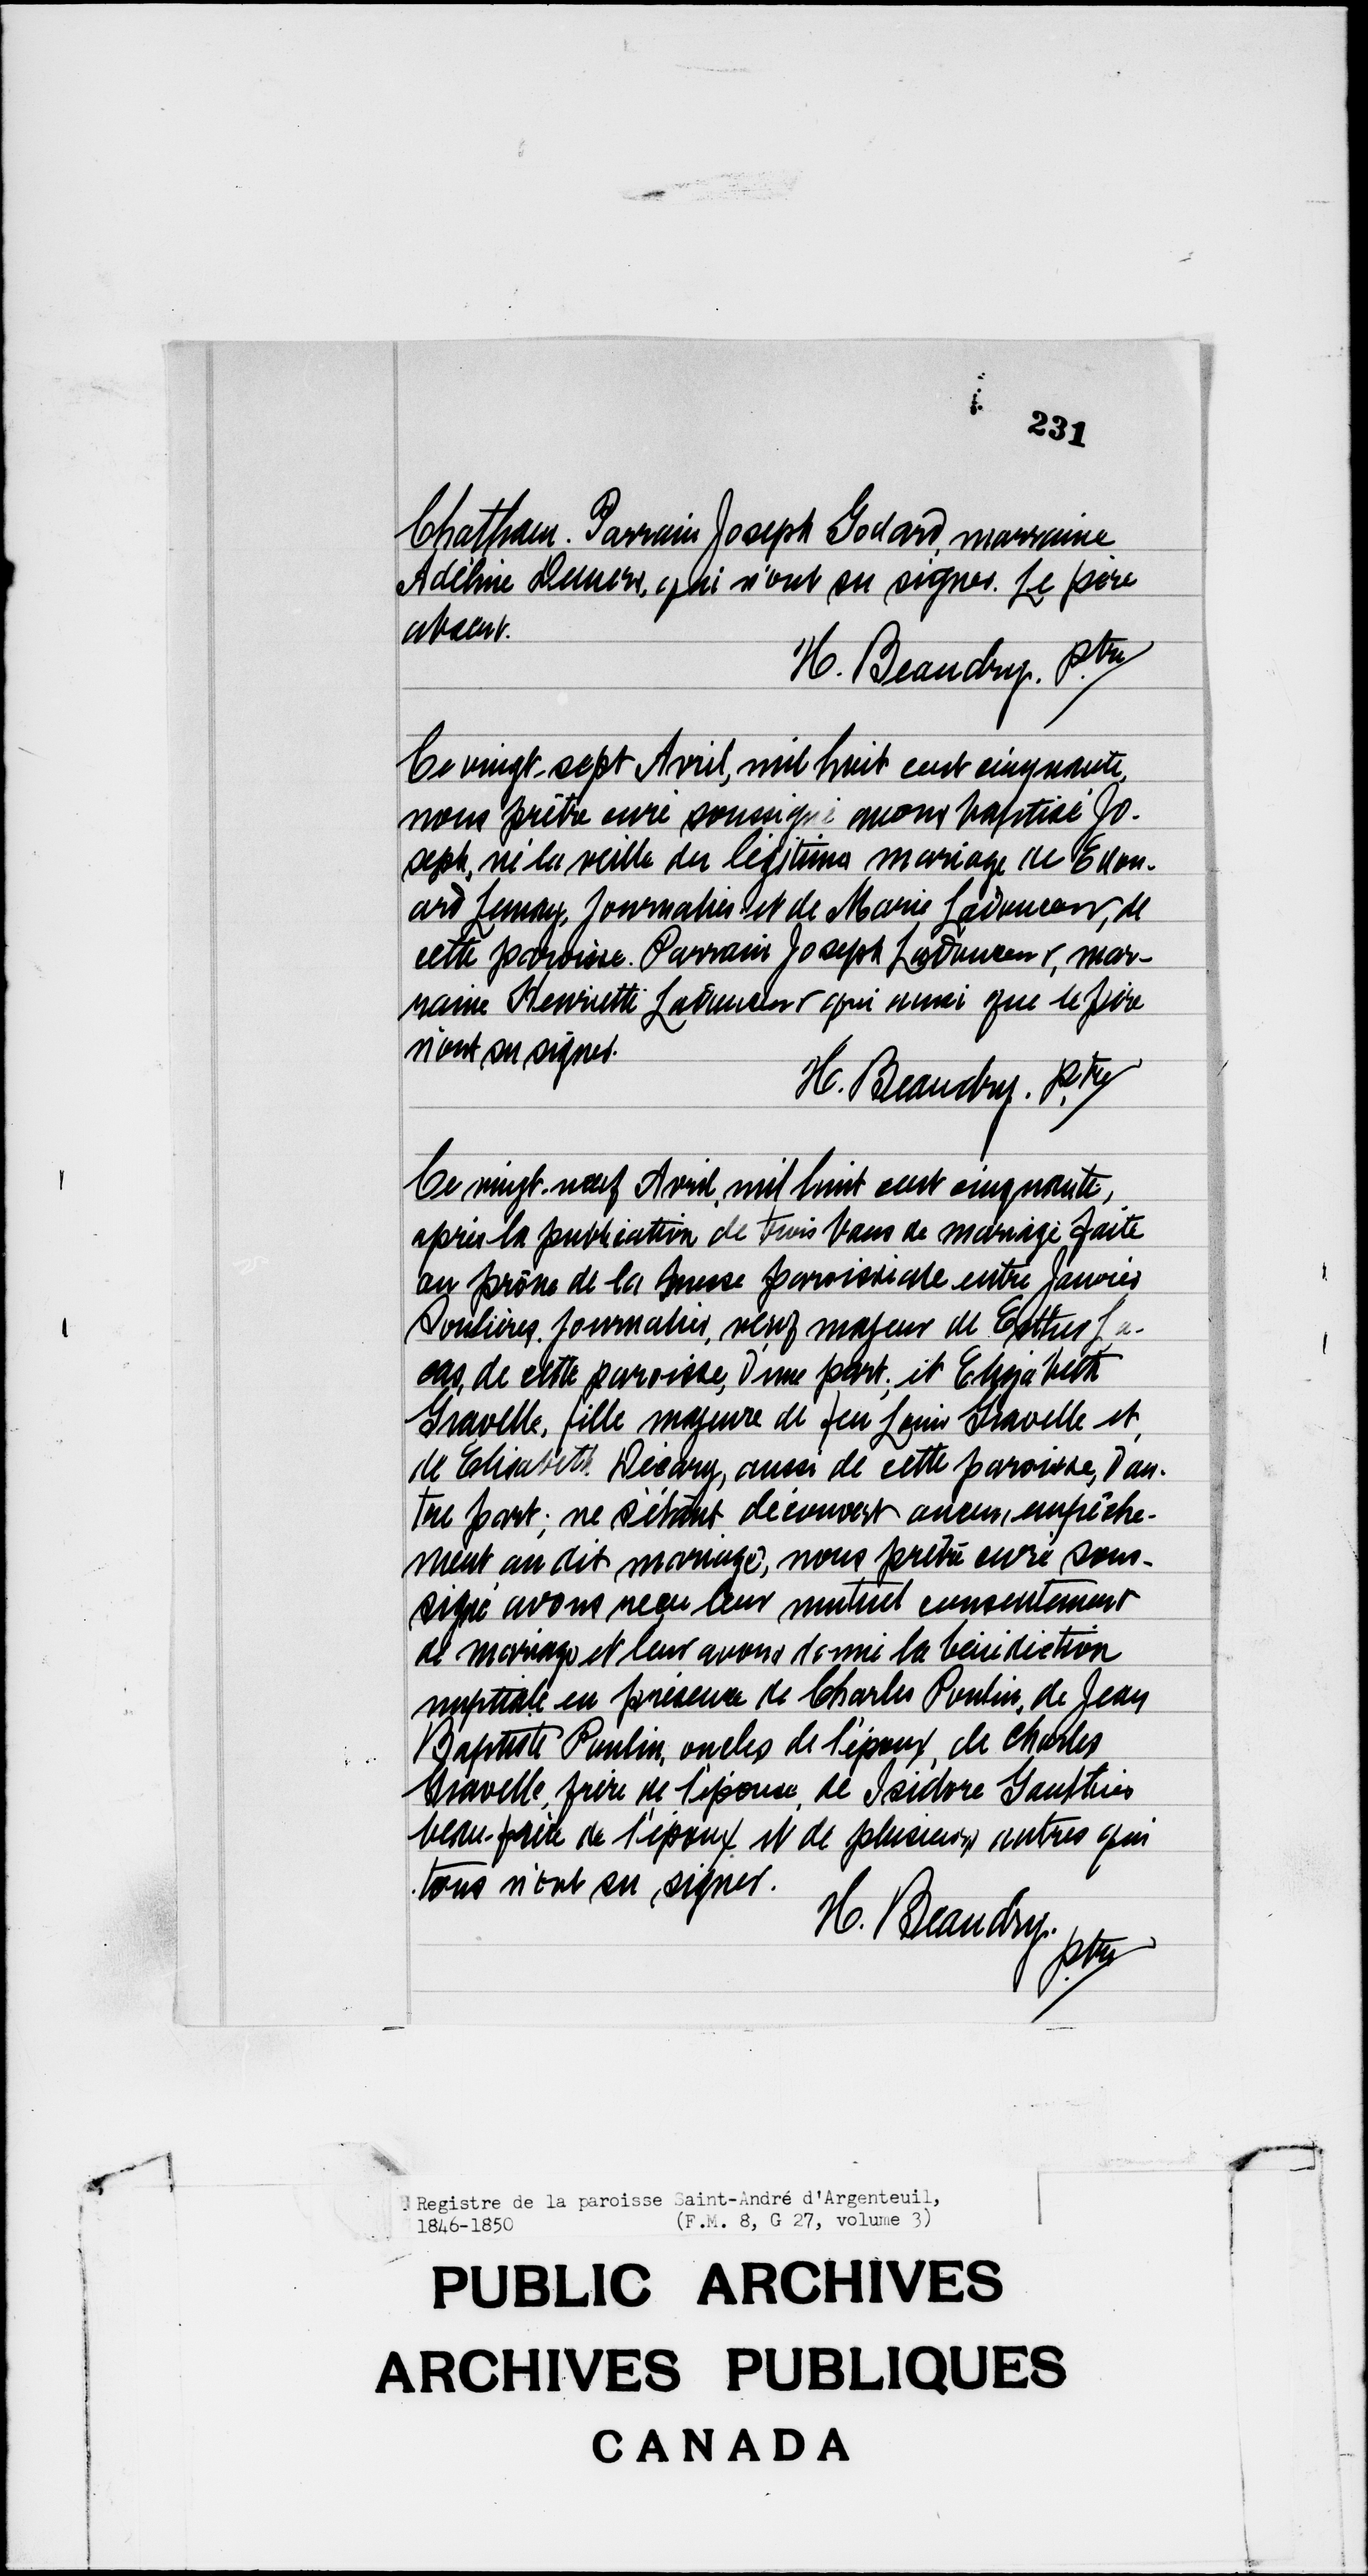 231
Chatham. Parrain Joseph Godard, marraine
Adéline Demers, qui n'ont su signer. Le père
absent.
H. Beaudry. ptre
Ce vingt-sept Avril, mil huit cent cinquante,
nous prêtre curé soussigné avons baptisé Jo-
seph, né la veille du légitime mariage de Edou-
ard Lemay, journalier et de Marie Ladouceur, de
cette paroisse. Parrain Joseph Ladouceur, mar-
raine Henriette Ladouceur qui ainsi que le père
n'ont su signer.
H. Beaudry. ptre
Ce vingt-neuf Avril, mil huit cent cinquante,
après la publication de trois bans de mariage faite
au prône de la messe paroissiale entre Janvier
Soulières, journalier, veuf majeur de Esther La-
cas, de cette paroisse, d'une part; et Elizabeth
Gravelle, fille majeure de feu Louis Gravelle et
de Elisabeth Décary, aussi de cette paroisse, d'au-
tre part; ne s'étant découvert aucun empêche-
ment au dit mariage, nous prêtre curé sous-
signé avons reçu leur mutuel consentement
de mariage et leur avons donné la bénédiction
nuptiale en présence de Charles Poulin, de Jean
Baptiste Poulin, oncles de l'époux, de Charles
Gravelle, frère de l'épouse, de Isidore Gauthier
beau-frère de l'époux et de plusieurs autres qui
tous n'ont su signer.
H. Beaudry.
ptre
Registre de la paroisse Saint-André d'Argenteuil,
1846-1850 (F.M. 8, G 27, volume 3)
PUBLIC ARCHIVES
ARCHIVES PUBLIQUES
CANADA